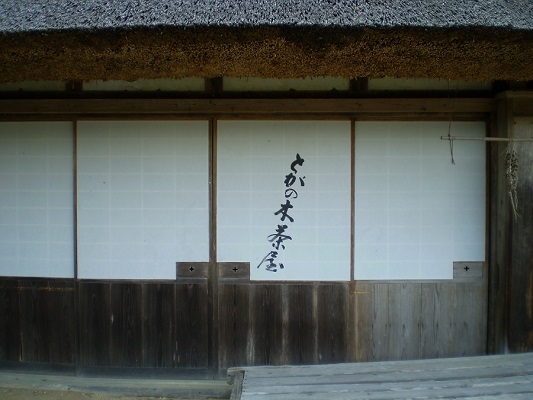 とがの木茶屋